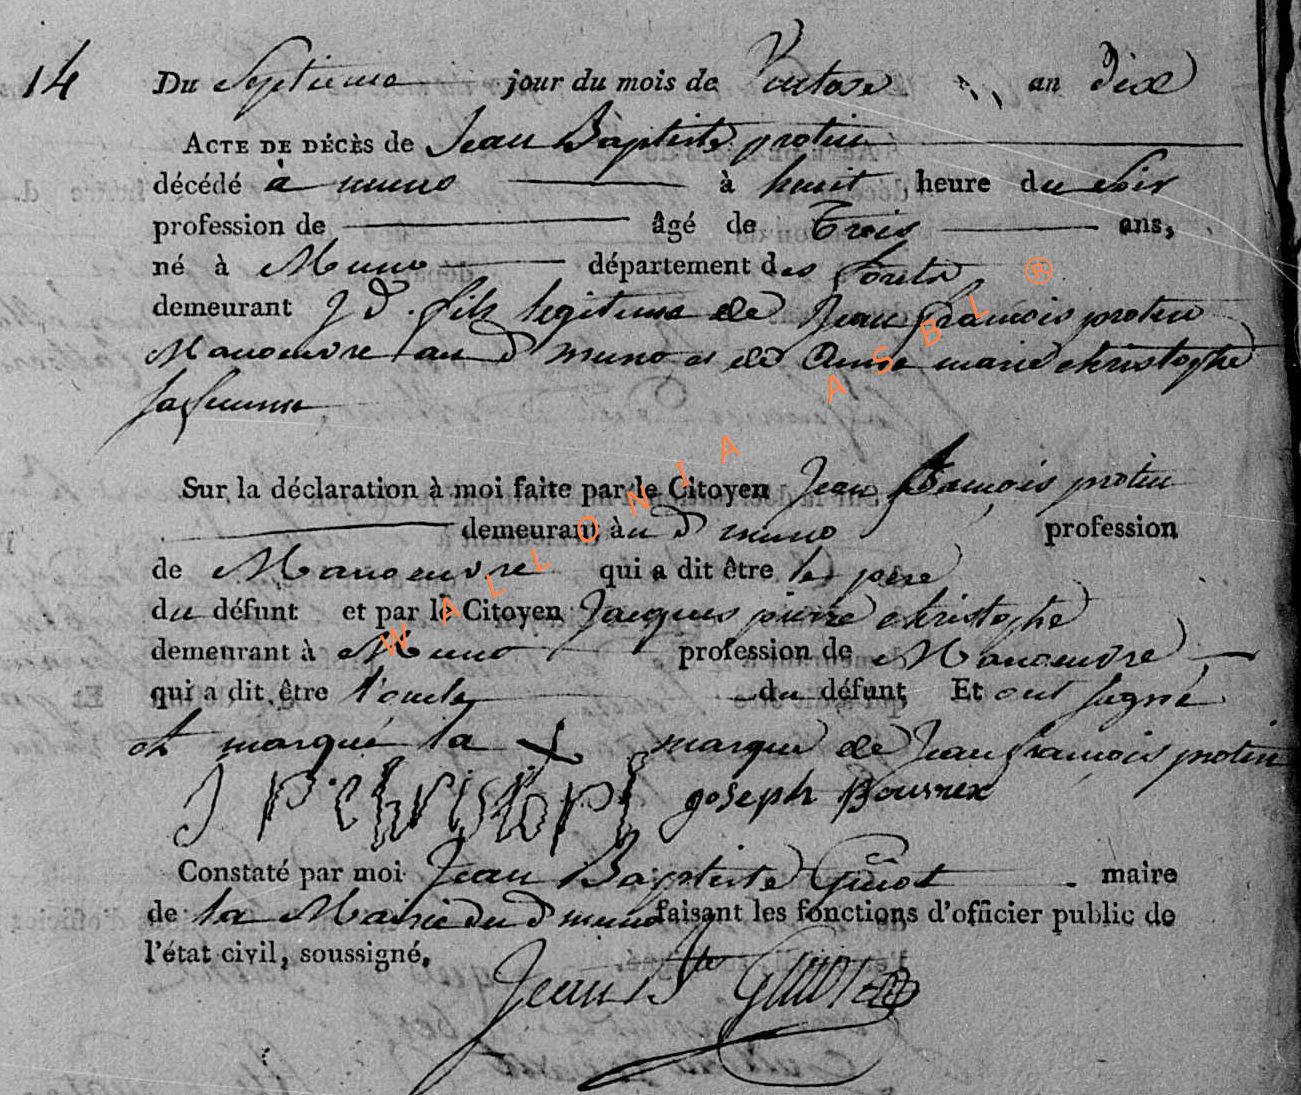 14 Du Septieme jour du mois de Ventose an dix
ACTE DE DÉCÈS de Jean Baptiste protin
décédé à muno à huit heure du soir
profession de âgé de Trois ans,
né à Muno département des forets
demeurant J d. fils legitime de Jean francois protin
Manoeuvre au d muno et de Anne marie christophe
sa femme
Sur la déclaration à moi faite par le Citoyen Jean francois protin
demeurant àu d muno profession
de Manoeuvre qui a dit être le pere
du défunt et par le Citoyen Jacques pierre christophe
demeurant à Muno profession de Manoeuvre
qui a dit être l'oncle du défunt Et ont signé
et marqué la X marque de Jean francois protin
J P christoph joseph
Constaté par moi Jean Baptiste Guiot maire
de la Mairie du d muno faisant les fonctions d'officier public de
l'état civil, soussigné.
Jean Bte Guiot
WALLONIA ASBL ®